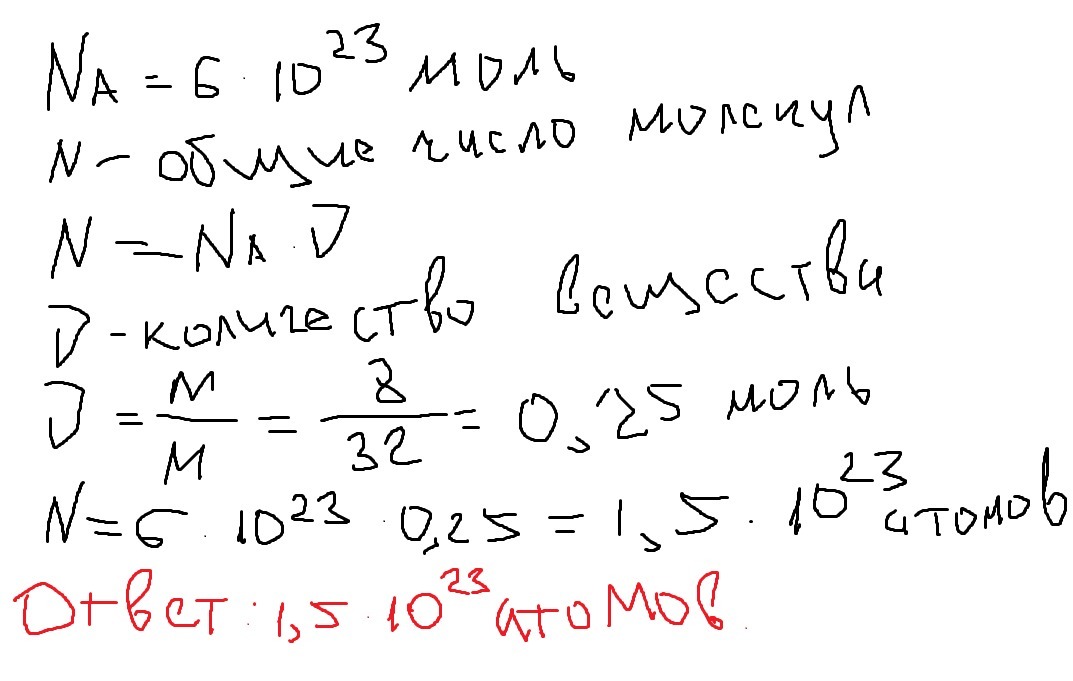 N_A = 6 · 10^23 моль
N – общие число молекул
N = N_A · ν
ν - количество вещества
ν = m/M = 8/32 = 0,25 моль
N = 6 · 10^23 · 0,25 = 1,5 · 10^23 атомов
Ответ: 1,5 · 10^23 атомов.